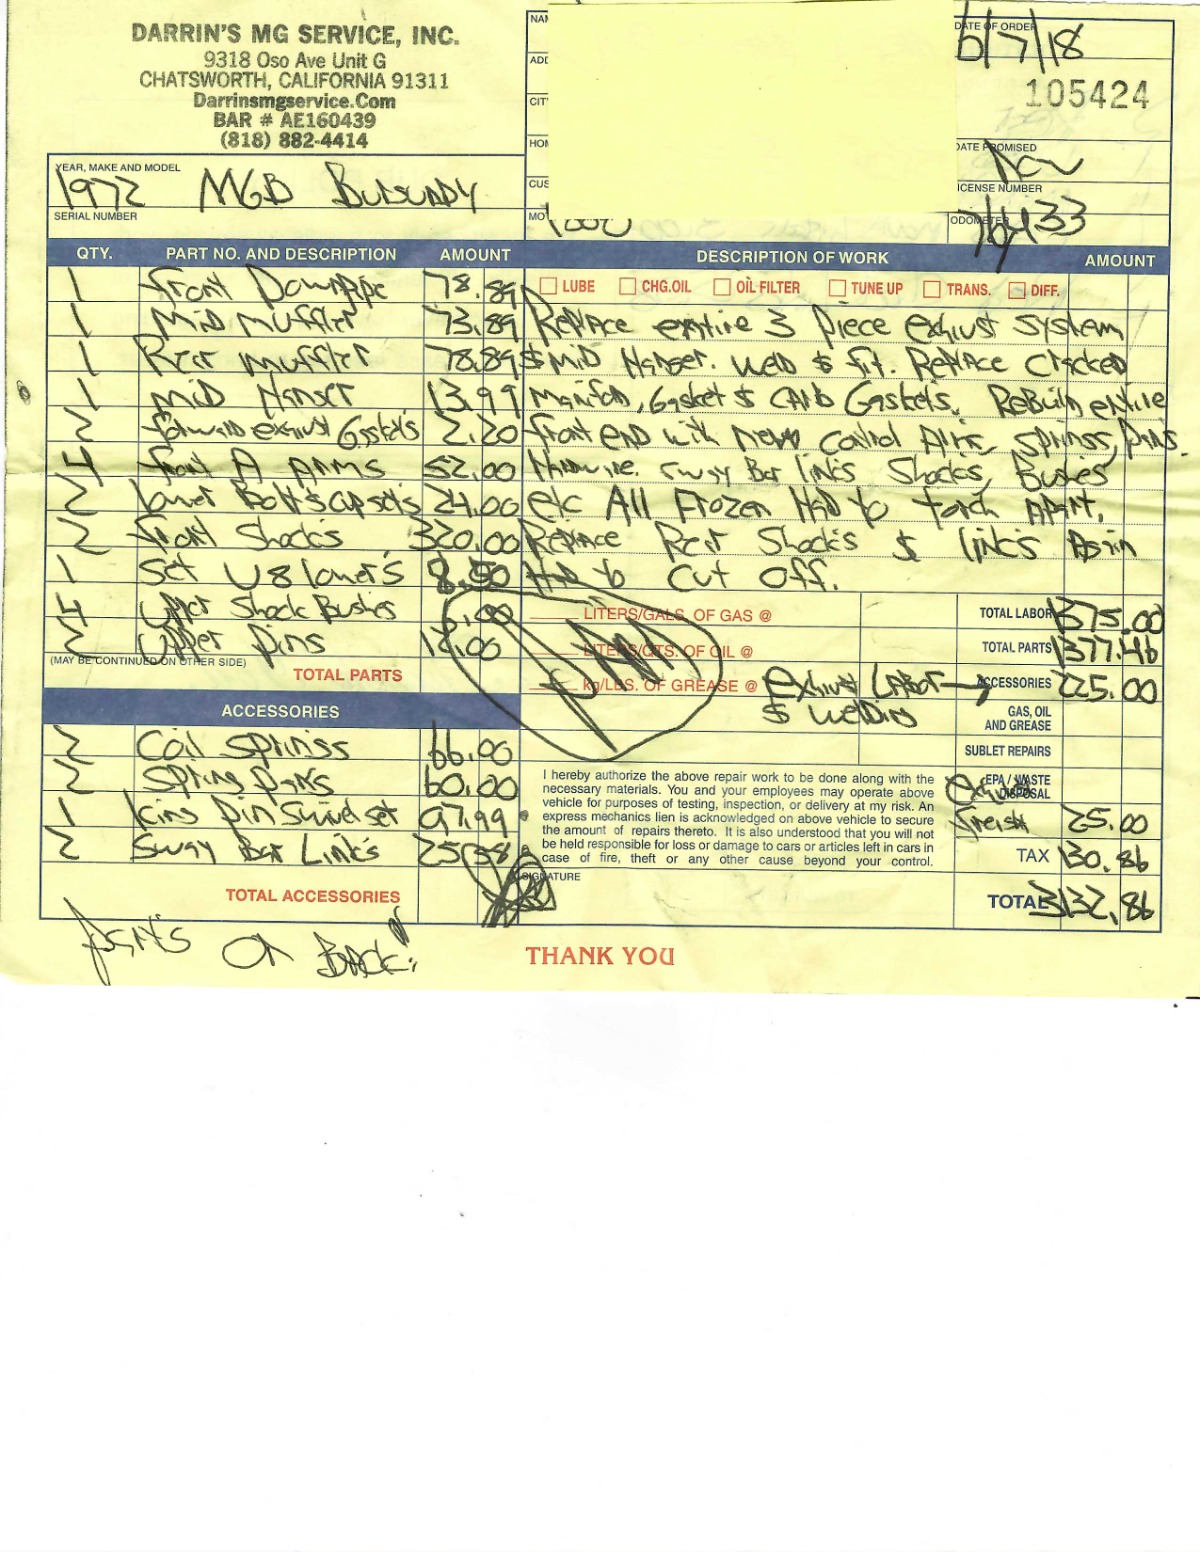 DARRIN'S MG SERVICE, INC.
9318 Oso Ave Unit G
CHATSWORTH, CALIFORNIA 91311
Darrinsmgservice.Com
BAR # AE160439
(818) 882-4414
NAM
ADD
CIT
HOM
CUS
MO
DATE OF ORDER
6/7/18
105424
DATE PROMISED
LICENSE NUMBER
ODOMETER
YEAR, MAKE AND MODEL
1972 MGB
SERIAL NUMBER
QTY. PART NO. AND DESCRIPTION AMOUNT DESCRIPTION OF WORK AMOUNT
LUBE CHG.OIL OIL FILTER TUNE UP TRANS. DIFF.
1 front Downpipe 78.89
1 Mid Muffler 73.89 Replace entire 3 piece exhust system
1 Rear Muffler 78.89 $ Mid Hanger. Weld $ fit. Replace Cracked
1 Mid Hanger 13.99 Manifold, Gasket $ Carb Gaskets. Rebuild entire
2 forward exhust Gaskets 2.20 front end with new Control Arms, Springs, Pans.
4 front A ARMS 52.00 Hardware. Sway Bar link's Shocks, Bushes
2 lower Bolt's cap set's 24.00 etc All Frozen Had to torch Apart.
2 front Shock's 320.00 Replace Rear Shock's $ link's Again
1 Set V8 lower's 8.50 Had to Cut Off.
4 Upper Shock Bushes 6.00
2 Upper Pins
(MAY BE CONTINUED ON OTHER SIDE)
TOTAL PARTS
LITERS/GALS. OF GAS @
LITERS/QTS. OF OIL @
kg/LBS. OF GREASE @
exhust LABOR
$ Welding
TOTAL LABOR 1375.00
TOTAL PARTS 1377.46
ACCESSORIES 225.00
GAS, OIL AND GREASE
SUBLET REPAIRS
EPA / WASTE DISPOSAL
freight 25.00
TAX 130.86
TOTAL 3132.86
ACCESSORIES
2 Coil springs 66.00
2 Spring pans 60.00
1 King pin Swivel set 97.99
2 Sway Bar Link's 25.38
TOTAL ACCESSORIES
I hereby authorize the above repair work to be done along with the
necessary materials. You and your employees may operate above
vehicle for purposes of testing, inspection, or delivery at my risk. An
express mechanics lien is acknowledged on above vehicle to secure
the amount of repairs thereto. It is also understood that you will not
be held responsible for loss or damage to cars or articles left in cars in
case of fire, theft or any other cause beyond your control.
SIGNATURE
Parts on BACK!
THANK YOU